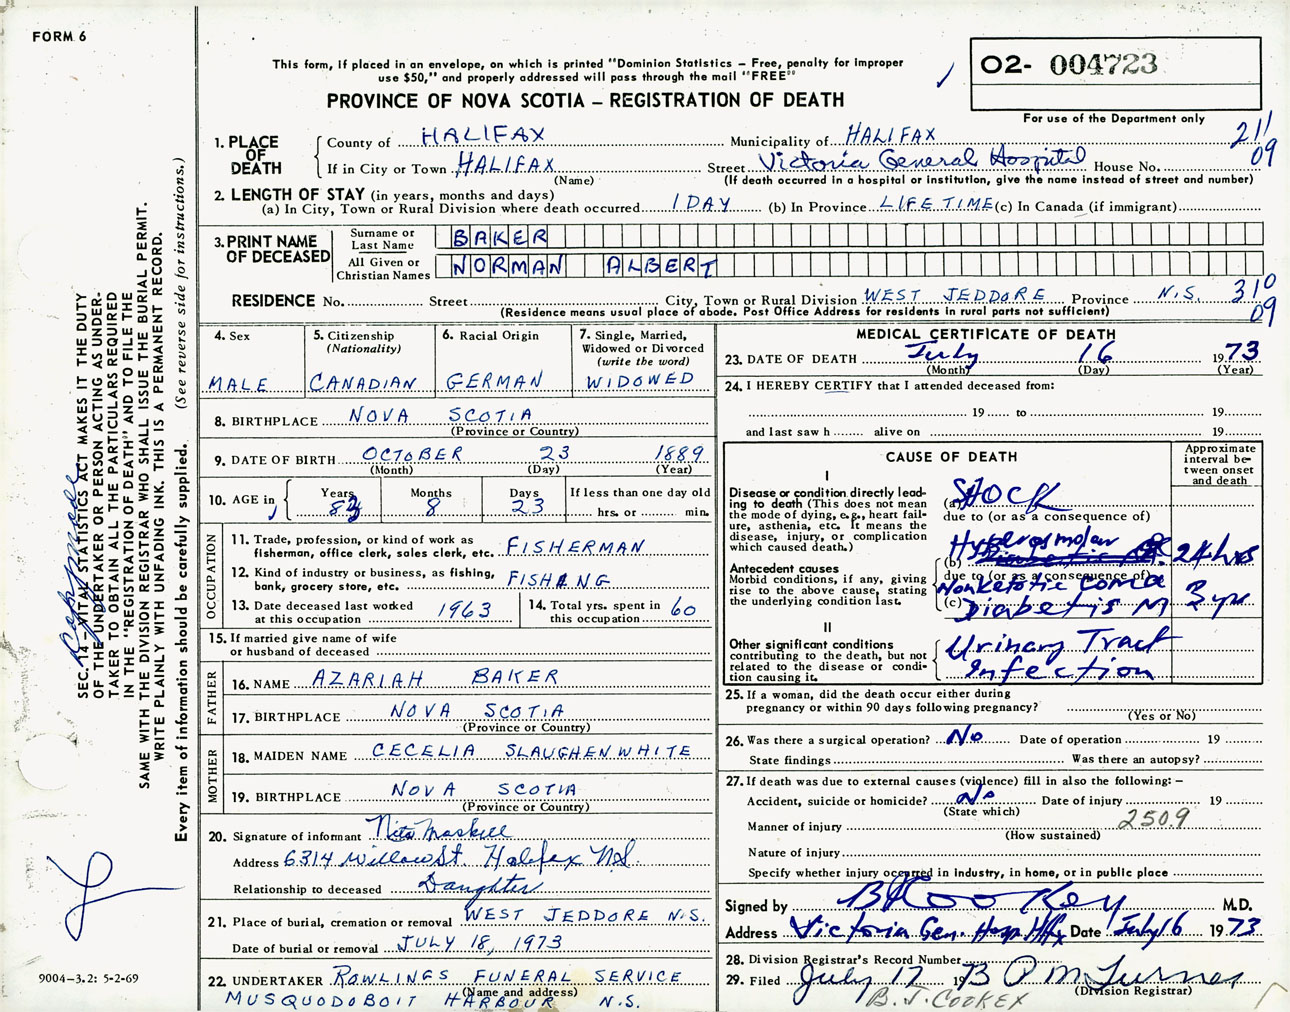 FORM 6
This form, if placed in an envelope, on which is printed "Dominion Statistics – Free, penalty for improper
use $50," and properly addressed will pass through the mail "FREE"
PROVINCE OF NOVA SCOTIA – REGISTRATION OF DEATH
O2- 004723
For use of the Department only
1. PLACE OF DEATH
County of HALIFAX Municipality of HALIFAX 211
If in City or Town HALIFAX Street Victoria General Hospital House No. 09
(Name) (If death occurred in a hospital or institution, give the name instead of street and number)
2. LENGTH OF STAY (in years, months and days)
(a) In City, Town or Rural Division where death occurred 1 DAY (b) In Province LIFE TIME (c) In Canada (if immigrant)
3. PRINT NAME OF DECEASED
Surname or Last Name BAKER
All Given or Christian Names NORMAN ALBERT
RESIDENCE No. Street City, Town or Rural Division WEST JEDDORE Province N.S. 310
(Residence means usual place of abode. Post Office Address for residents in rural parts not sufficient) 09
4. Sex MALE
5. Citizenship (Nationality) CANADIAN
6. Racial Origin GERMAN
7. Single, Married, Widowed or Divorced (write the word) WIDOWED
8. BIRTHPLACE NOVA SCOTIA
(Province or Country)
9. DATE OF BIRTH OCTOBER 23 1889
(Month) (Day) (Year)
10. AGE in Years 83 Months 8 Days 23 If less than one day old
hrs. or min.
OCCUPATION
11. Trade, profession, or kind of work as
fisherman, office clerk, sales clerk, etc. FISHERMAN
12. Kind of industry or business, as fishing,
bank, grocery store, etc. FISHING
13. Date deceased last worked
at this occupation 1963
14. Total yrs. spent in
this occupation 60
15. If married give name of wife
or husband of deceased
FATHER
16. NAME AZARIAH BAKER
17. BIRTHPLACE NOVA SCOTIA
(Province or Country)
MOTHER
18. MAIDEN NAME CECELIA SLAUGHENWHITE
19. BIRTHPLACE NOVA SCOTIA
(Province or Country)
20. Signature of informant Nita Maskell
Address 6314 Willow St. Halifax N.S.
Relationship to deceased Daughter
21. Place of burial, cremation or removal WEST JEDDORE N.S.
Date of burial or removal JULY 18, 1973
22. UNDERTAKER ROWLINGS FUNERAL SERVICE
(Name and address)
MUSQUODOBOIT HARBOUR N.S.
MEDICAL CERTIFICATE OF DEATH
23. DATE OF DEATH July 16 1973
(Month) (Day) (Year)
24. I HEREBY CERTIFY that I attended deceased from:
19 to 19
and last saw h alive on 19
CAUSE OF DEATH
Approximate interval between onset and death
I
Disease or condition directly leading to death (This does not mean the mode of dying, e.g., heart failure, asthenia, etc. It means the disease, injury, or complication which caused death.)
(a) SHOCK
due to (or as a consequence of)
Antecedent causes
Morbid conditions, if any, giving rise to the above cause, stating the underlying condition last.
Hyperosmolar
(b) 24 hrs
due to (or as a consequence of)
Nonketotic Coma
(c) Diabetis M 3 yrs
II
Other significant conditions
contributing to the death, but not related to the disease or condition causing it.
Urinary Tract
Infection
25. If a woman, did the death occur either during
pregnancy or within 90 days following pregnancy?
(Yes or No)
26. Was there a surgical operation? No Date of operation 19
State findings Was there an autopsy?
27. If death was due to external causes (violence) fill in also the following: –
Accident, suicide or homicide? No Date of injury 19
(State which)
Manner of injury 250.9
(How sustained)
Nature of injury
Specify whether injury occurred in industry, in home, or in public place
Signed by B J Cookey M.D.
Address Victoria Gen. Hosp. Hfx Date July 16 1973
28. Division Registrar's Record Number
29. Filed July 17 1973 P M Turner
(Division Registrar)
B. J. COOKEY
SEC. 14 – VITAL STATISTICS ACT MAKES IT THE DUTY
OF THE UNDERTAKER OR PERSON ACTING AS UNDER-
TAKER TO OBTAIN ALL THE PARTICULARS REQUIRED
IN THE "REGISTRATION OF DEATH" AND TO FILE THE
SAME WITH THE DIVISION REGISTRAR WHO SHALL ISSUE THE BURIAL PERMIT.
WRITE PLAINLY WITH UNFADING INK. THIS IS A PERMANENT RECORD.
Every item of information should be carefully supplied. (See reverse side for instructions.)
9004–3.2: 5-2-69